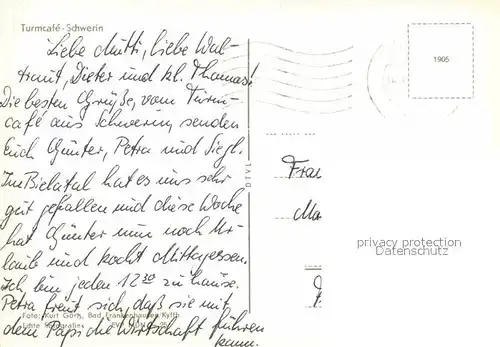 Turmcafé-Schwerin
Liebe Mutti, liebe Wal-
traut, Dieter und kl. Thomas!
Die besten Grüße, vom Turm-
café aus Schwerin, senden
Euch Günter, Petra und Siegl.
Im Bielatal hat es uns sehr
gut gefallen und diese Woche
hat Günter nun noch Ur-
laub und kocht Mittagessen.
Ich bin jeden 12 30 zu hause.
Petra freut sich, daß sie mit
dem Papi die Wirtschaft führen
kann.
Foto: Kurt Görtz, Bad Frankenhausen/Kyffh.
Echte Fotografie
DTVL
1905
Frau
privacy protection
Datenschutz